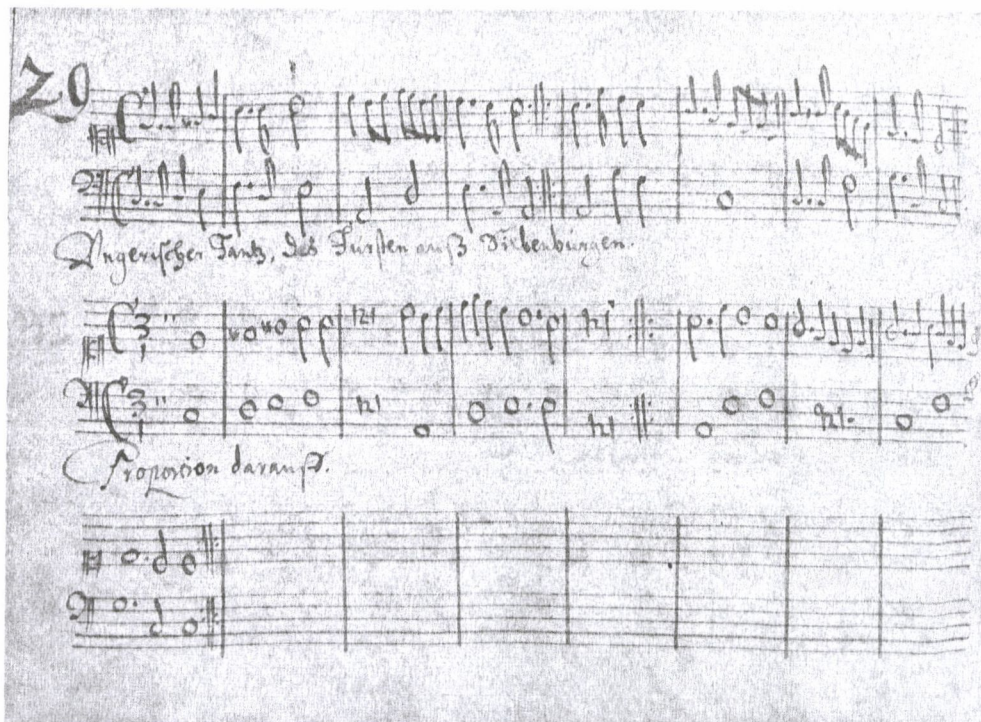 20
Ungerischer Tantz, des Fürsten auß Sibenbürgen.
3
1
3
1
Proportion darauß.